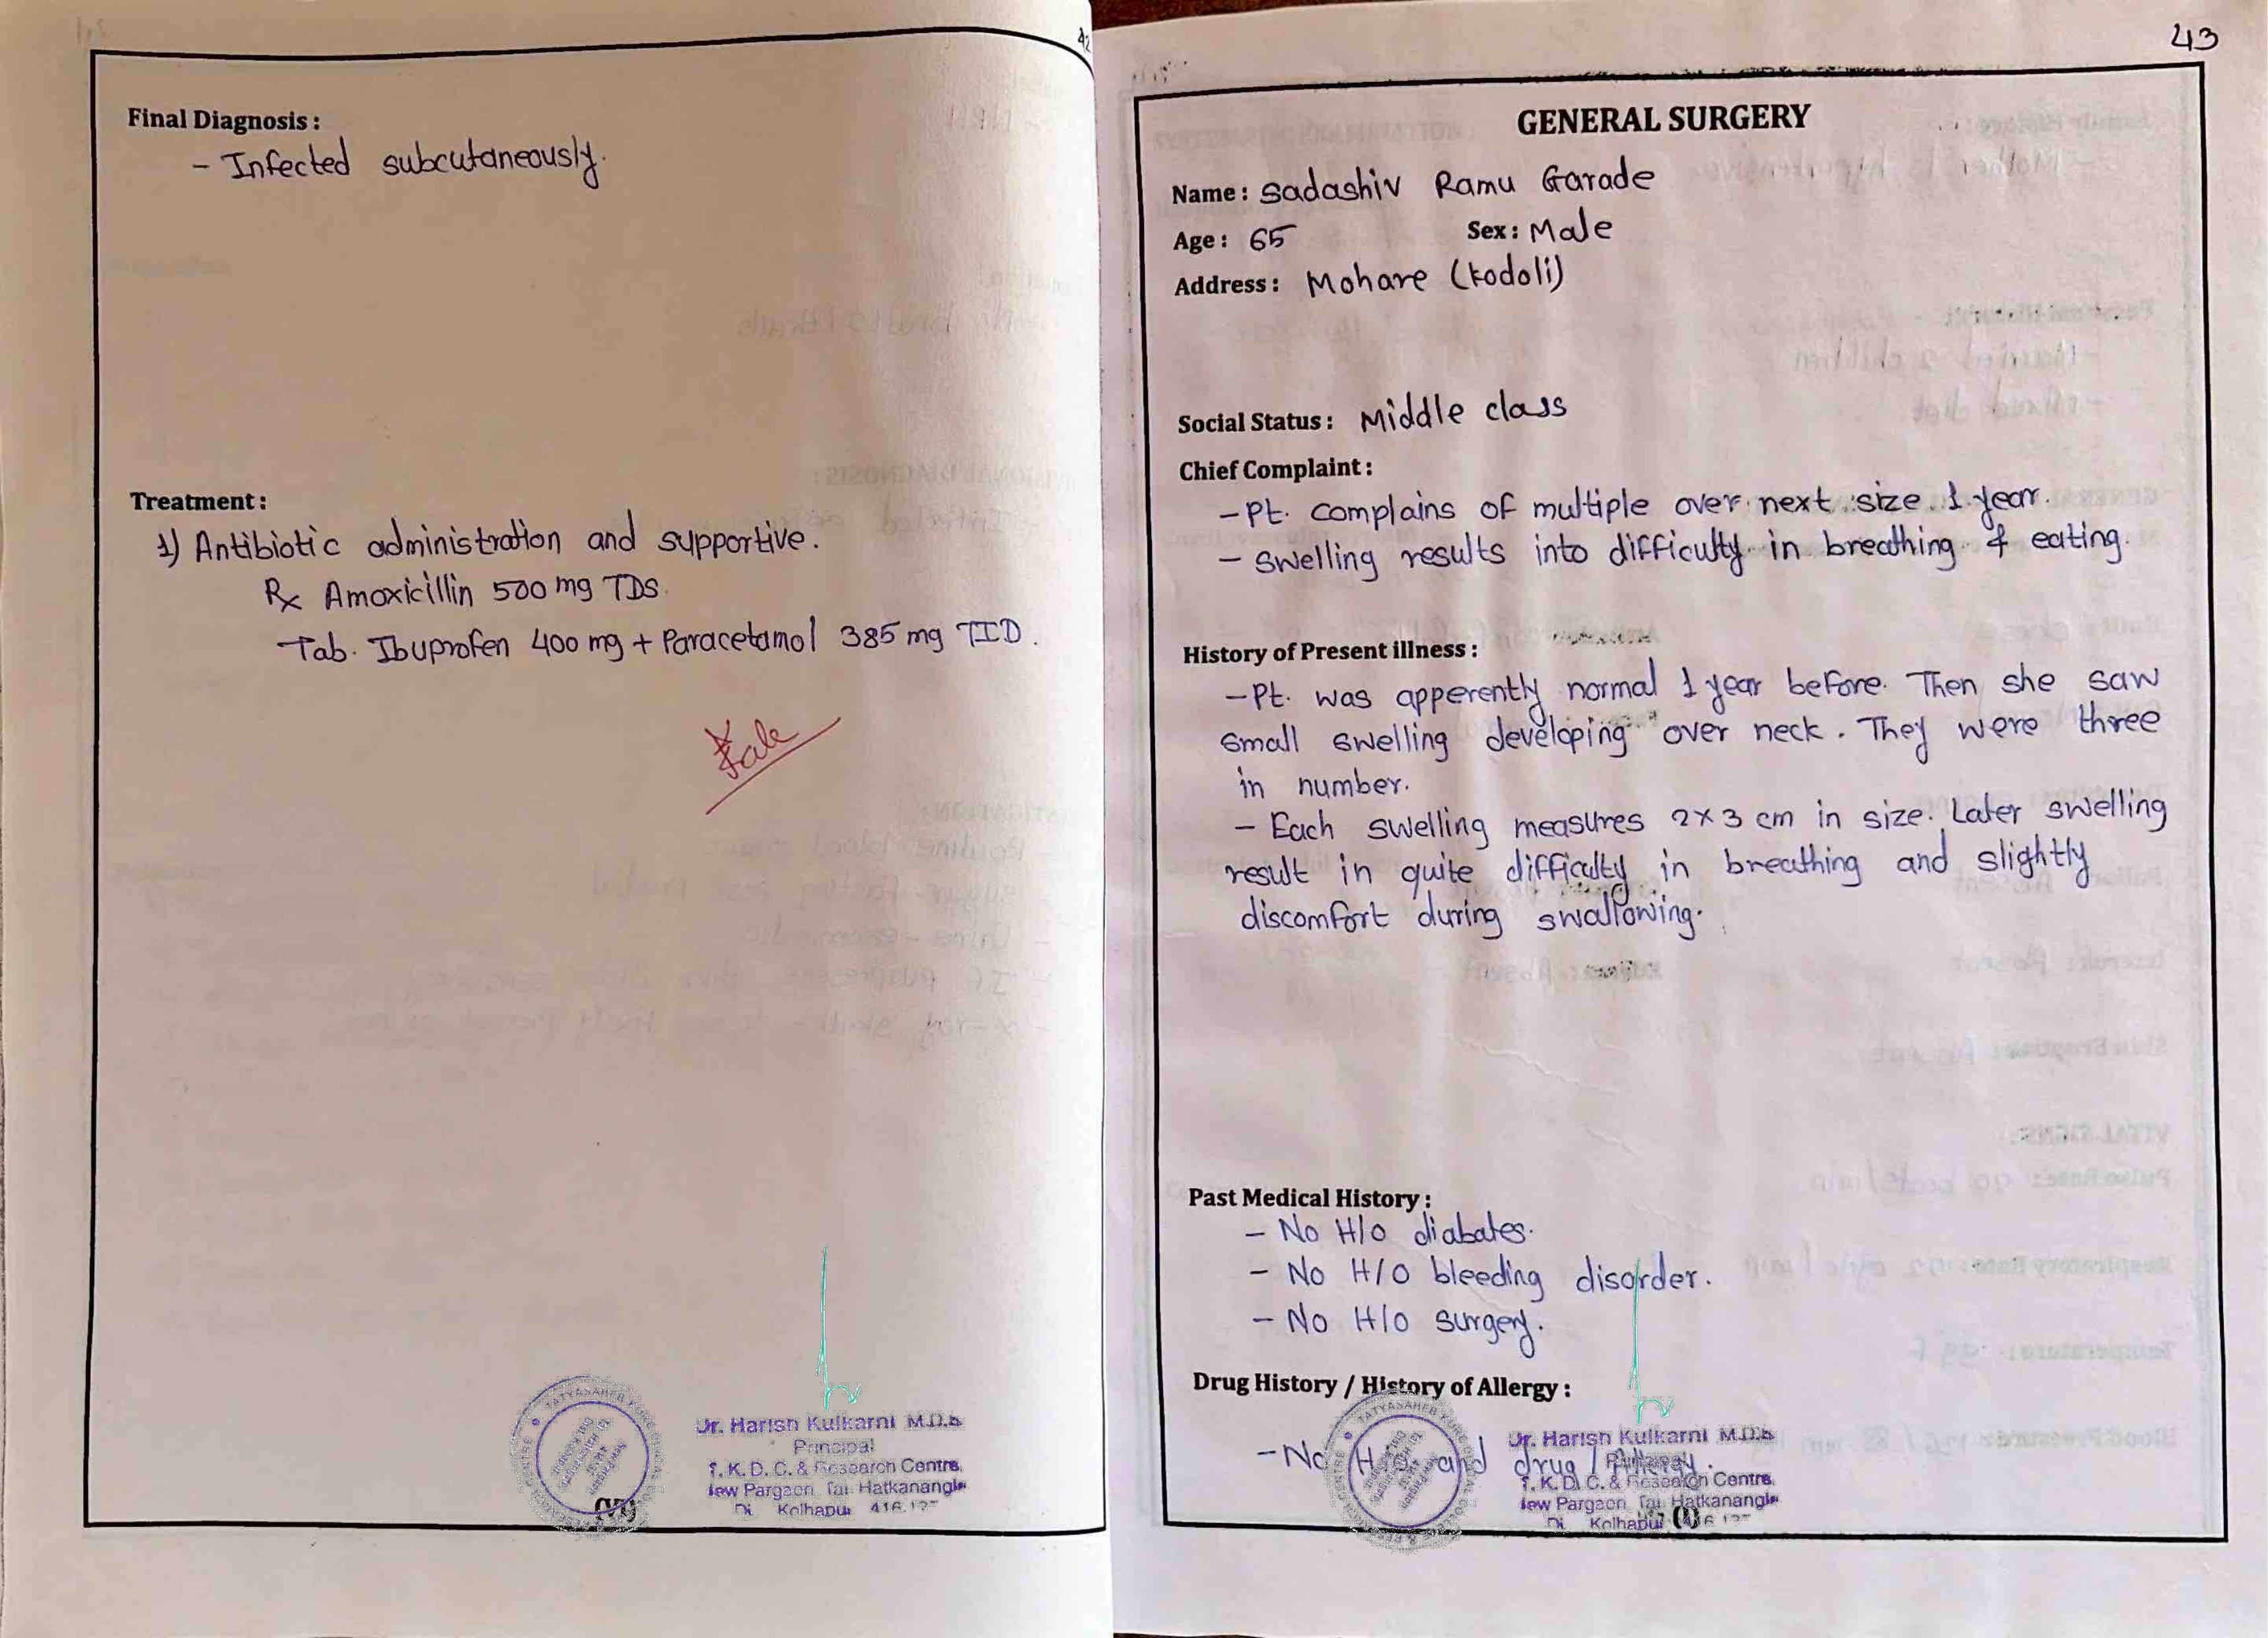 42
Final Diagnosis :
- Infected subcutaneously.
Treatment :
1) Antibiotic administration and supportive.
Rx Amoxicillin 500 mg TDS.
Tab. Ibuprofen 400 mg + Paracetamol 385 mg TID.
Dr. Harish Kulkarni M.D.S
Principal
T. K. D. C. & Research Centre,
New Pargaon, Tal. Hatkanangle
Di. Kolhapur 416 137
43
GENERAL SURGERY
Name : Sadashiv Ramu Garade
Age : 65 Sex : Male
Address : Mohare (Kodoli)
Social Status : Middle class
Chief Complaint :
- Pt. complains of multiple over next size 1 year.
- Swelling results into difficulty in breathing & eating.
History of Present illness :
- Pt. was apperently normal 1 year before. Then she saw
small swelling developing over neck. They were three
in number.
- Each swelling measures 2x3 cm in size. Later swelling
result in quite difficulty in breathing and slightly
discomfort during swallowing.
Past Medical History :
- No H/O diabates.
- No H/O bleeding disorder.
- No H/O surgery.
Drug History / History of Allergy :
- No H/O and drug /
Dr. Harish Kulkarni M.D.S
Principal
T. K. D. C. & Research Centre,
New Pargaon, Tal. Hatkanangle
Di. Kolhapur 416 137
(1)